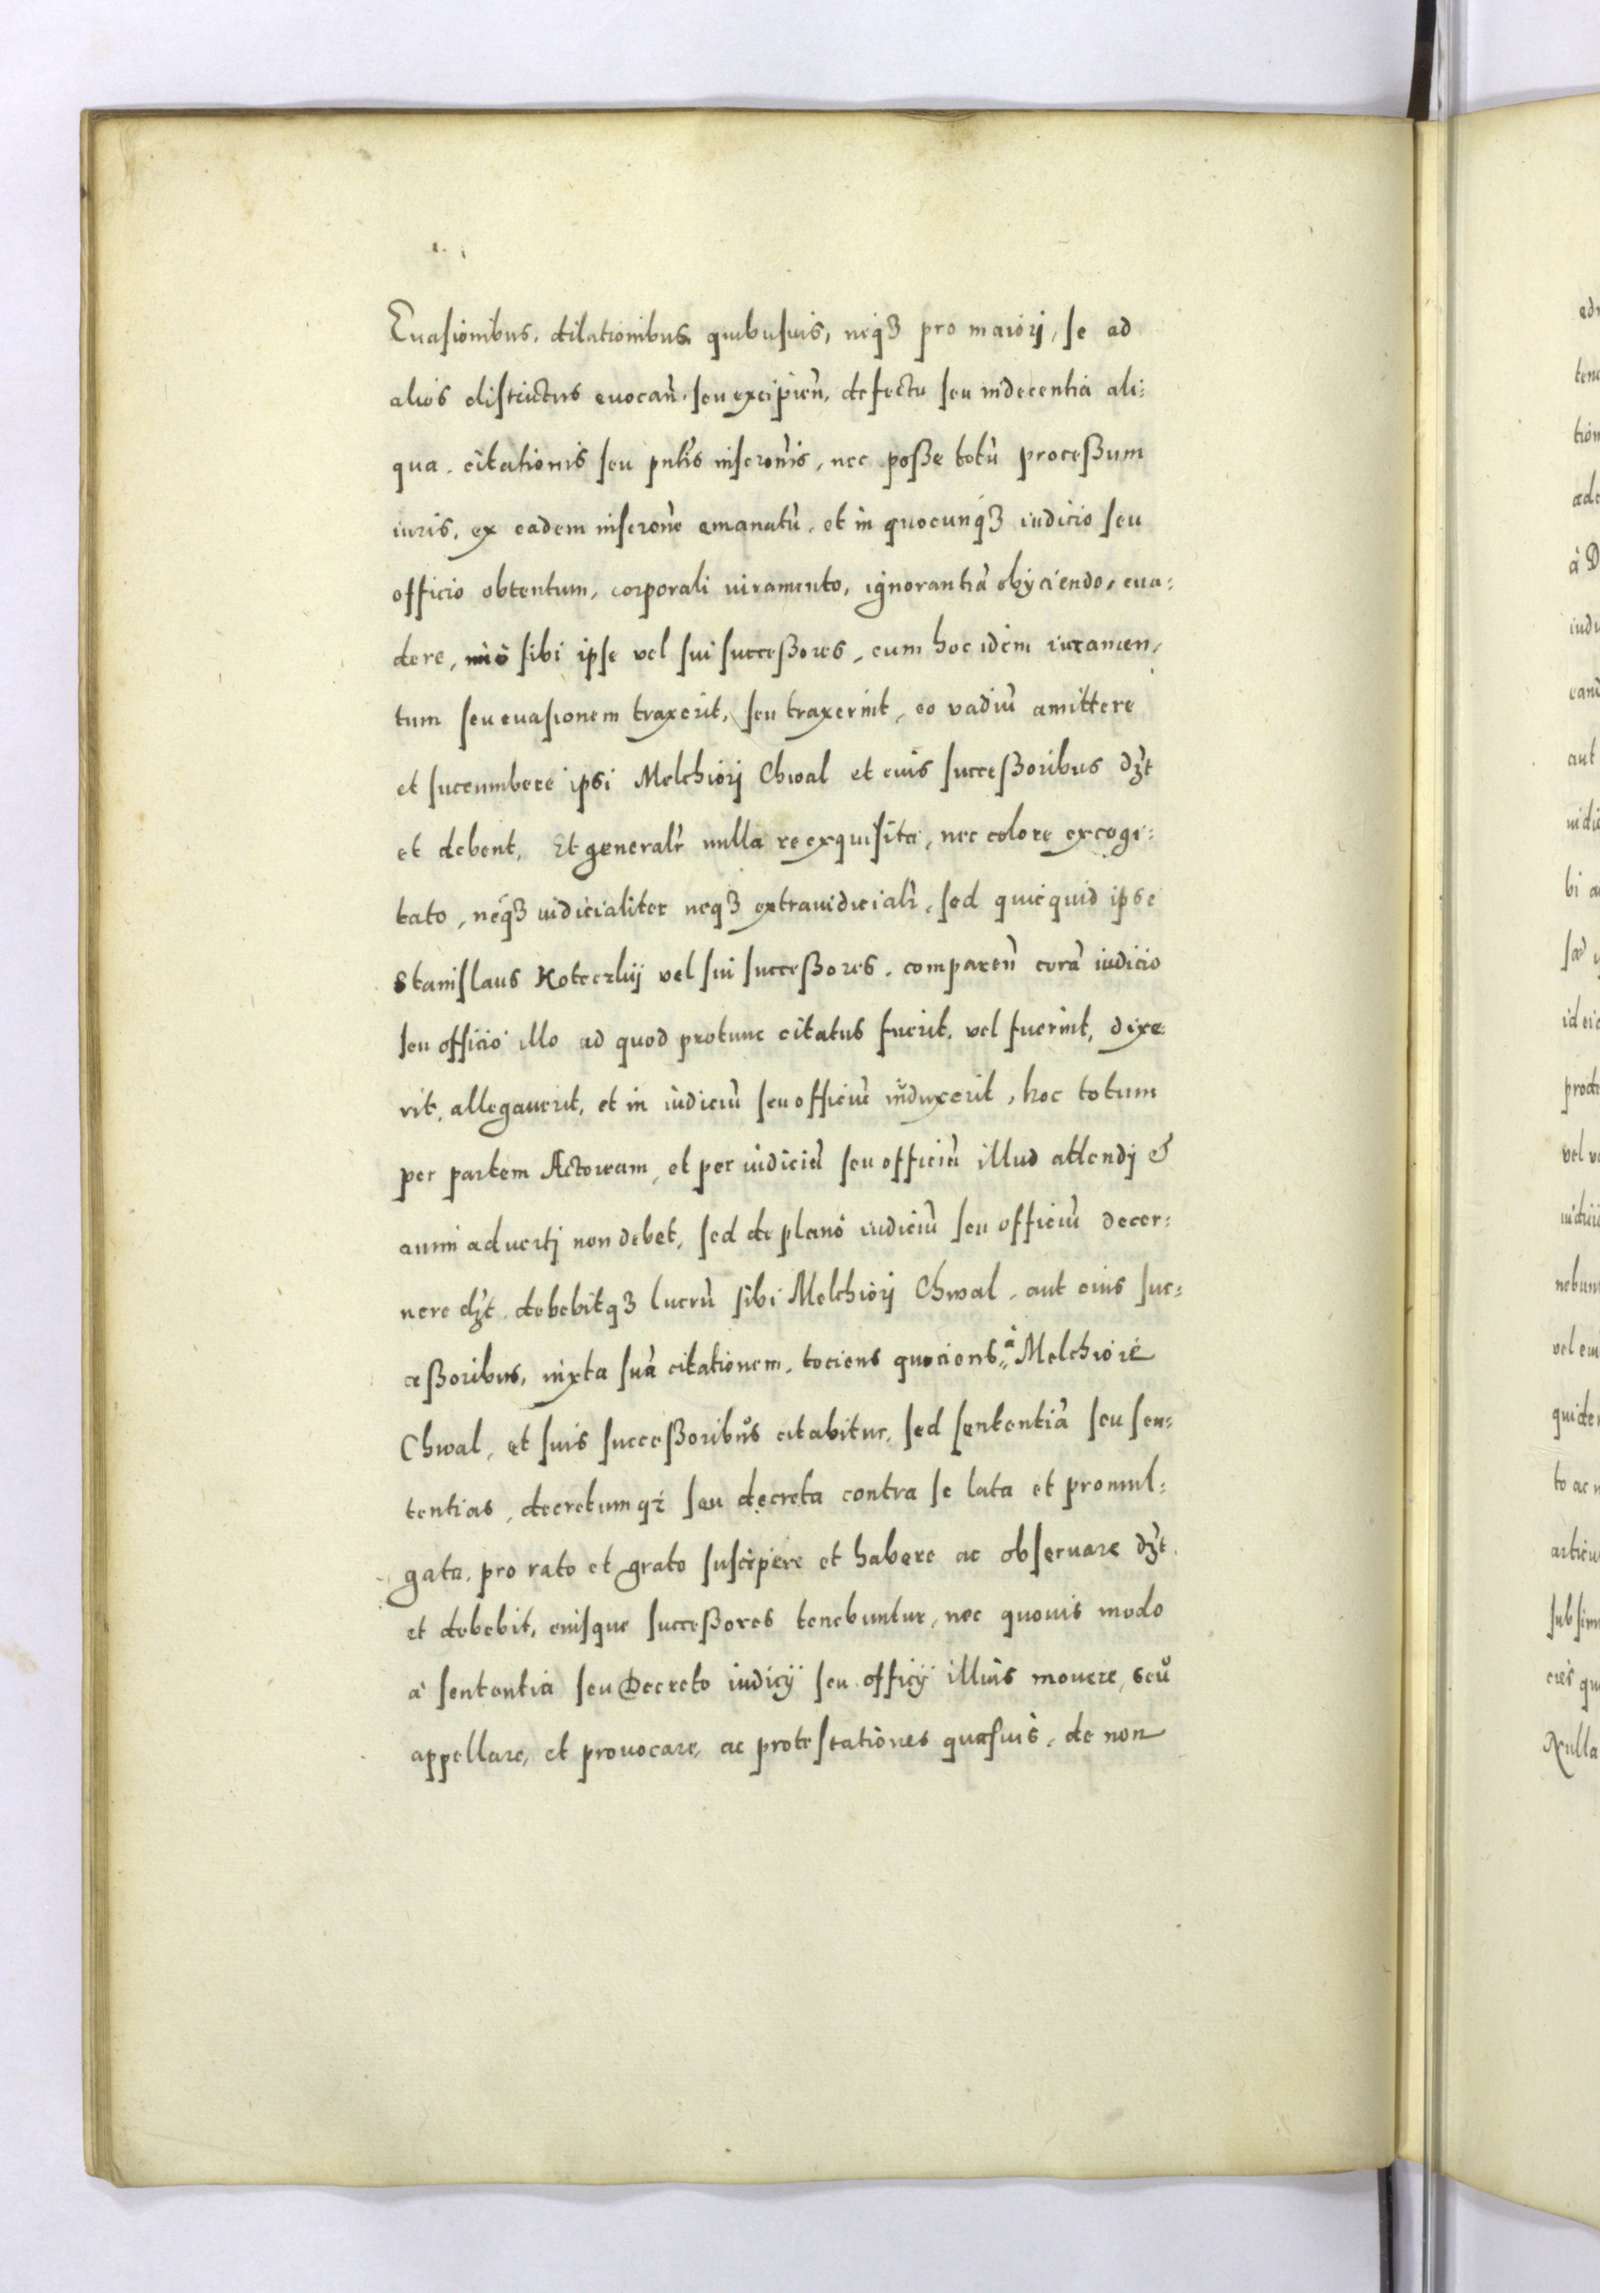 Euasionibus, dilationibus quibusuis, neqȝ pro maiorj, se ad
alios districtus euocan̄, seu excipien̄, defectu seu indecentia ali:
qua, citationis seu pn̄tis inscron̄is, nec posse totū processum
iuris, ex eadem inscron̄e emanatū, et in quocunqȝ iudicio seu
officio obtentum, corporali iuramento, ignorantiā obijciendo, eua:
dere, sibi ipse vel sui successores, cum hoc idem iuramen,
tum seu euasionem traxerit, seu traxerint, eo vadiū amittere
et succumbere ipsi Melchiorj Chwal et eius successoribus dȝt
et debent, Et generalr̄ nulla re exquisita, nec colore excogi:
tato, neqȝ iudicialiter neqȝ extraiudicialr̄, sed quicquid ipse
Stanislaus Koteczkij vel sui successores, comparen̄ corā iudicio
seu officio illo ad quod protunc citatus fuerit, vel fuerint, dixe:
rit, allegauerit, et in iudiciū seu officiū induxerit, hoc totum
per partem Actoream, et per iudiciū seu officiū illud attendj &
animaduertj non debet, sed de plano iudiciū seu officiū decer:
nere dȝt, debebitqȝ lucrū sibi Melchiorj Chwal, aut eius suc:
cessoribus, iuxta suā citationem, tociens quociens à Melchiore
Chwal, et suis successoribus citabitur, sed sententiā seu sen:
tentias, decretumqȝ seu decreta contra se lata et promul:
gata, pro rato et grato suscipere et habere ac obseruare dȝt
et debebit, eiusque successores tenebuntur, nec quouis modo
à sententia seu Decreto iudicij seu officij illius mouere, seu
appellare, et prouocare, ac protestationes quasuis, de non